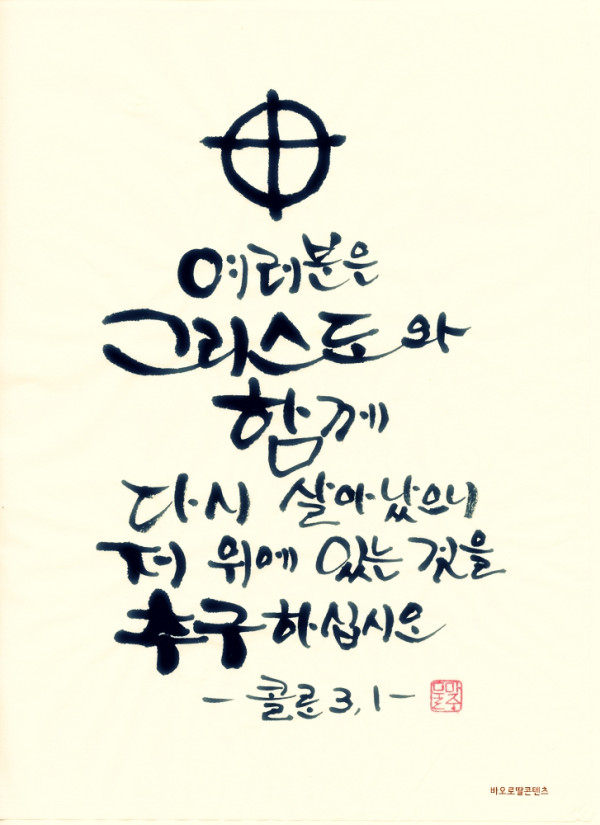 여러분은
그리스도와
함께
다시 살아났으니
저 위에 있는 것을
추구하십시오
- 콜론 3, 1 -
바오로딸콘텐츠